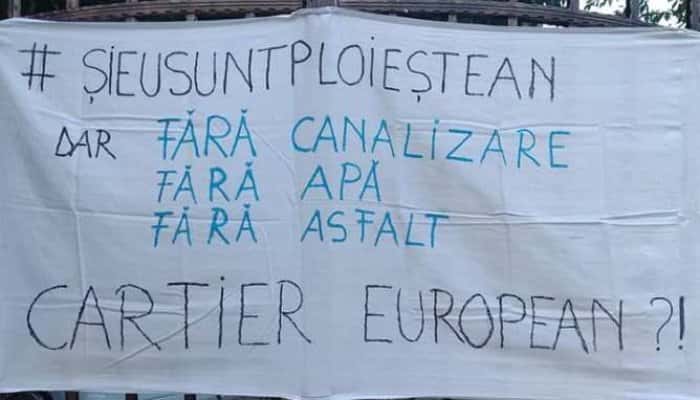 # ȘIEUSUNTPLOIEȘTEAN
DAR FĂRĂ CANALIZARE
FĂRĂ APĂ
FĂRĂ ASFALT
CARTIER EUROPEAN ?!